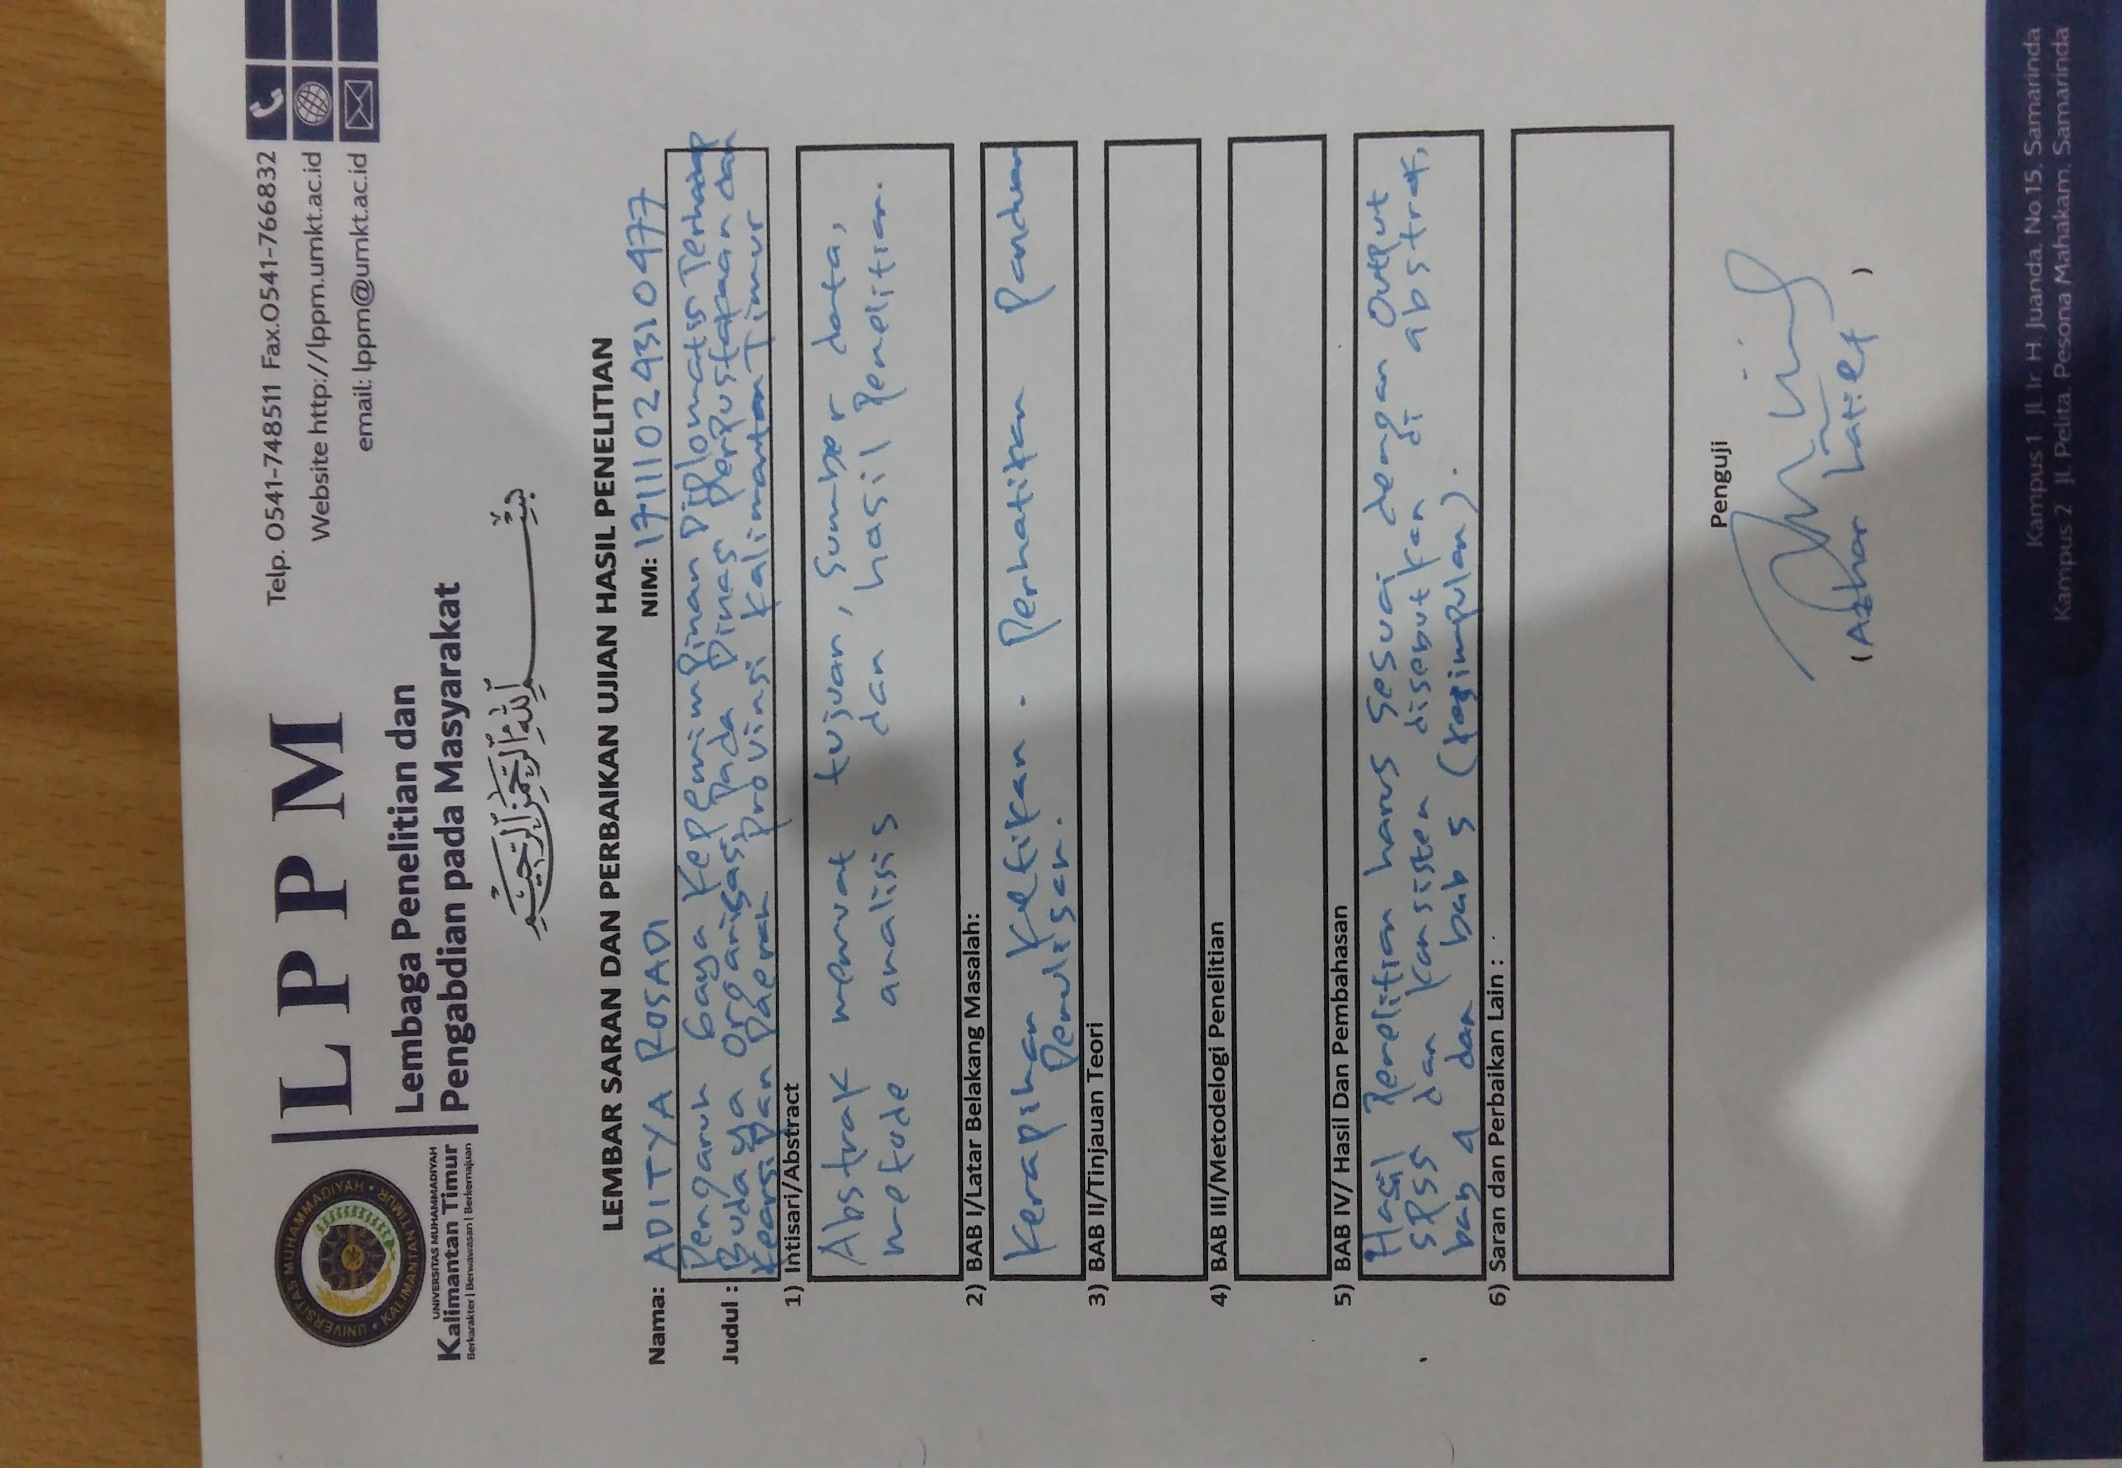 UNIVERSITAS MUHAMMADIYAH • KALIMANTAN TIMUR •
UNIVERSITAS MUHAMMADIYAH
Kalimantan Timur
Berkarakter | Berwawasan | Berkemajuan
LPPM
Lembaga Penelitian dan
Pengabdian pada Masyarakat
Telp. 0541-748511 Fax.0541-766832
Website http://lppm.umkt.ac.id
email: lppm@umkt.ac.id
بسم الله الرحمن الرحيم
LEMBAR SARAN DAN PERBAIKAN UJIAN HASIL PENELITIAN
Nama: ADITYA ROSADI NIM: 17111024310477
Judul : Pengaruh Gaya Kepemimpinan Diplomatis Terhadap
Budaya Organisasi Pada Dinas Perpustakaan dan
Kearsipan Daerah Provinsi Kalimantan Timur
1) Intisari/Abstract
Abstrak memuat tujuan, Sumber data,
metode analisis dan hasil Penelitian.
2) BAB I/Latar Belakang Masalah:
Kerapihan Ketikan. Perhatikan Panduan
Penulisan.
3) BAB II/Tinjauan Teori
4) BAB III/Metodelogi Penelitian
5) BAB IV/ Hasil Dan Pembahasan
Hasil Penelitian harus Sesuai dengan Output
SPSS dan Konsisten disebutkan di abstrak,
bab 4 dan bab 5 (Kesimpulan).
6) Saran dan Perbaikan Lain :
Penguji
(Azhar Latief)
Kampus 1 Jl. Ir. H. Juanda. No.15, Samarinda
Kampus 2 Jl. Pelita, Pesona Mahakam, Samarinda